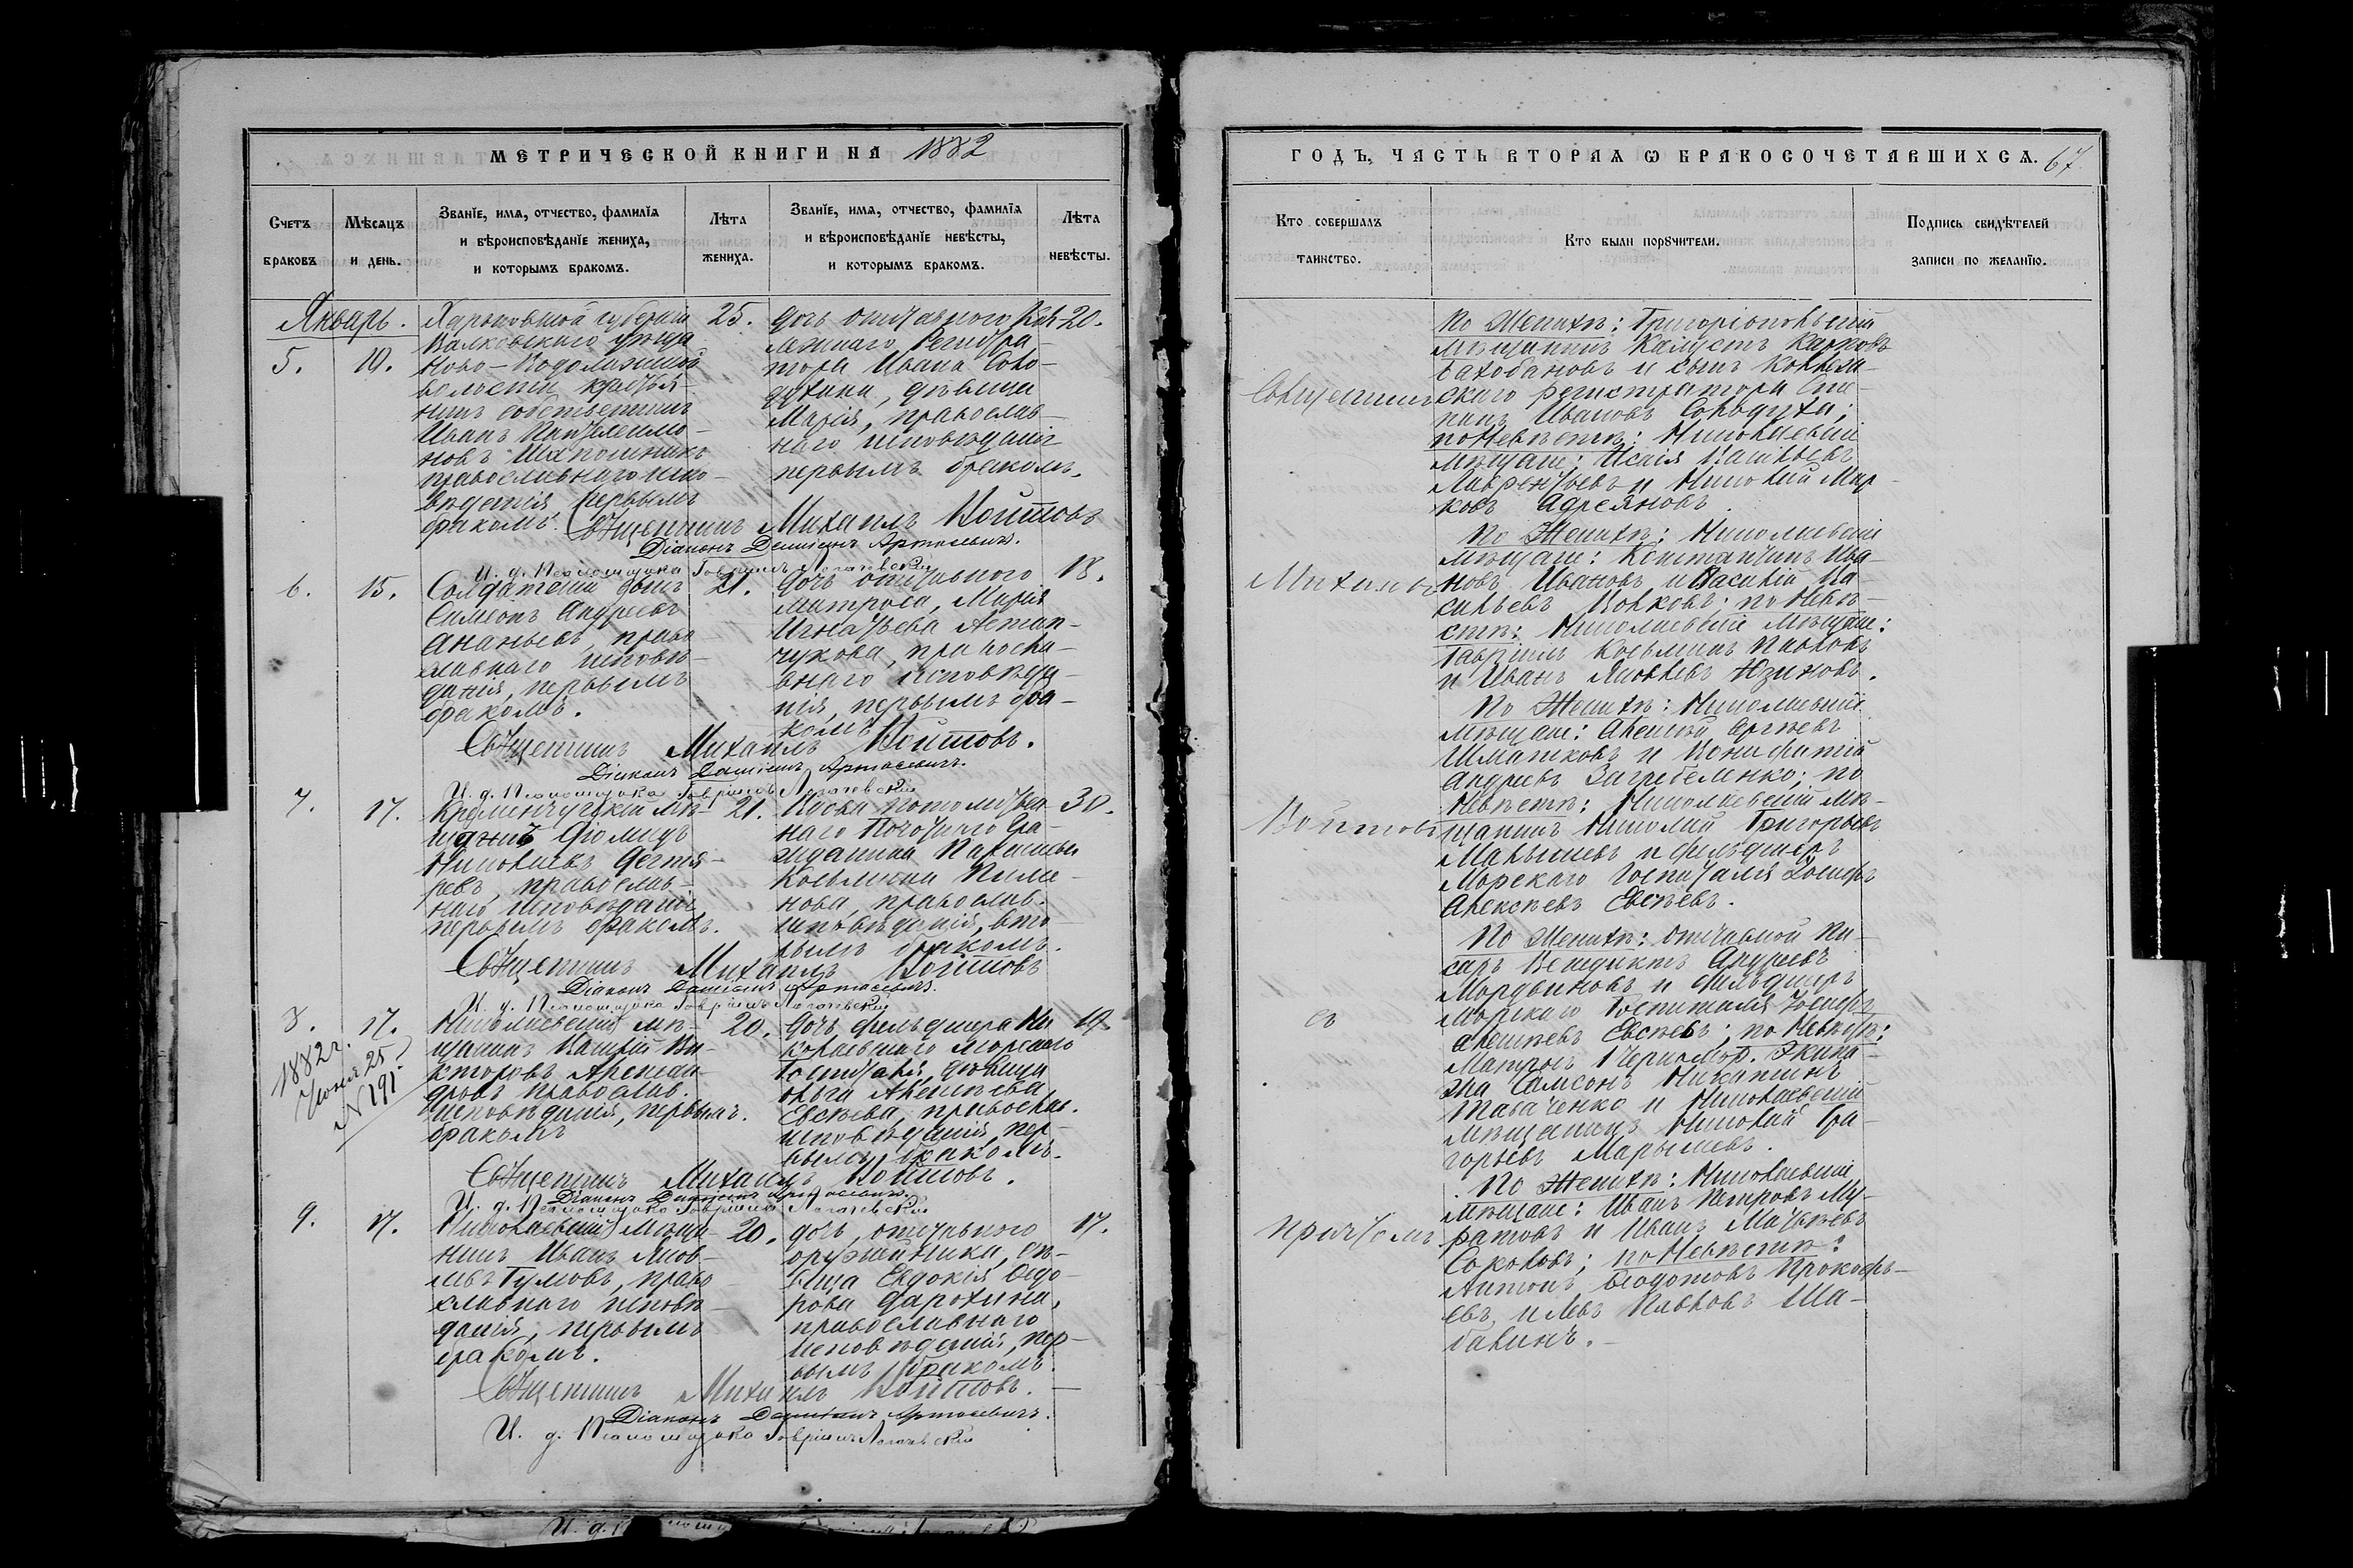 МЕТРИЧЕСКОЙ КНИГИ НА 1882
Счетъ браковъ
Мѣсяцъ и день.
Званіе, имя, отчество, фамилія
и вѣроисповѣданіе жениха,
и которымъ бракомъ.
Лѣта жениха.
Званіе, имя, отчество, фамилія
и вѣроисповѣданіе невѣсты,
и которымъ бракомъ.
Лѣта невѣсты.
Январь.
5.
10.
Харьковской губерніи
Валковскаго уѣзда
Ново-Водолажской
волости крестья-
нинъ собственникъ
Иванъ Пантелеимо-
новъ Шапошникъ
православнаго испо-
вѣданія, первымъ
бракомъ.
25.
дочь отставного Кол-
лежскаго Регистра-
тора Ивана Соло-
духина, дѣвица
Марія, православ-
наго исповѣданія
первымъ бракомъ.
20.
Священникъ Михаилъ Войтовъ
Діаконъ Даміанъ Артосевичъ.
И. д. Псаломщика Гавріилъ
6.
15.
Солдатскій сынъ
Симеонъ Андреевъ
Ананьевъ, право
славнаго исповѣ-
данія, первымъ
бракомъ.
21.
Дочь отставного
матроса, Марія
Игнатьева
православ-
внаго исповѣда-
нія, первымъ бра-
комъ
18.
Священникъ Михаилъ Войтовъ.
Діаконъ Даміанъ Артосевичъ.
И. д. Псаломщика Гавріилъ
7.
17.
Кременчугскій мѣ-
щанинъ Діомидъ
Николаевъ Дегтя-
ревъ, православ-
наго исповѣданія
первымъ бракомъ.
21.
Вдова потомствен-
наго Почетнаго Гра-
жданина
Космина Пиме-
нова, православ.
исповѣданія, вто-
рымъ бракомъ.
30.
Священникъ Михаилъ Войтовъ
Діаконъ Даміанъ Артосевичъ.
И. д. Псаломщика Гавріилъ
8.
17.
1882 г.
Іюня 25
№ 191.
Николаевскій мѣ-
щанинъ Василій Ви-
кторовъ Алексан-
дровъ православ.
исповѣданія, первымъ
бракомъ
20.
Дочь фельдшера Ни
колаевскаго морскаго
Госпиталя, дѣвица
Ольга Алексѣева
Евсѣева, православ.
исповѣданія, пер-
вымъ бракомъ.
19
Священникъ Михаилъ Войтовъ.
Діаконъ Даміанъ Артосевичъ.
И. д. Псаломщика Гавріилъ
9.
17.
Николаевскій мѣща
нинъ Иванъ Яков-
левъ Гумовъ, право
славнаго исповѣ-
данія, первымъ
бракомъ.
20.
дочь, отставного
оружейника, дѣ-
вица Евдокія Ѳедо-
рова Дарохина,
православнаго
исповѣданія, пер-
вымъ бракомъ.
17.
Священникъ Михаилъ Войтовъ.
Діаконъ Даміанъ Артосевичъ.
И. д. Псаломщика Гавріилъ
ГОДЪ, ЧАСТЬ ВТОРАЯ Ѡ БРАКОСОЧЕТАВШИХСЯ. 67
Кто совершалъ таинство.
Кто были поручители.
Подпись свидѣтелей
записи по желанію.
Священникъ
Михаилъ
Войтовъ
съ
причтомъ
По Женихѣ: Григоріопольскій
мѣщанинъ Калустъ Карповъ
и сынъ Коллеж-
скаго регистратора Сте-
панъ Ивановъ Солодухи;
по Невѣстѣ: Николаевскій
мѣщане: Исаія Васильевъ
Лаврентьевъ и Николай Мар-
ковъ Адреяновъ.
По Женихѣ: Николаевскіе
мѣщане: Константинъ Ива-
новъ Ивановъ и Василій Ва-
сильевъ Волковъ; по Невѣ-
стѣ: Николаевскіе Мѣщане:
Гавріилъ Косьминъ Павловъ
и Иванъ Яковлевъ Юзиковъ.
По Женихѣ: Николаевскіе
мѣщане: Алексѣй Сергѣевъ
Шматковъ и Вонифатій
Андреевъ Загребеленко; по
Невѣстѣ: Николаевскій мѣ-
щанинъ Николай Григорьевъ
Малышевъ и фельдшеръ
Морскаго Госпиталя Іосифъ
Алексѣевъ Евсѣевъ.
По Женихѣ: отставной пи-
сарь Венедиктъ Андреевъ
Мордвиновъ и Фельдшеръ
Морскаго Госпиталя Іосифъ
Алексѣевъ Евсѣевъ; по Невѣстѣ:
Матросъ 1 Черномор. Экипа-
жа Самсонъ Никитинъ
Ткаченко и Николаевскій
мѣщанинъ Николай Гри-
горьевъ Марышевъ.
По Женихѣ: Николаевскіе
мѣщане: Иванъ Петровъ Му-
ратовъ и Иванъ Матвѣевъ
Соколовъ; по Невѣстѣ:
Антонъ Ѳедотовъ Прокофь-
евъ, и Левъ Павловъ Ша-
балинъ.